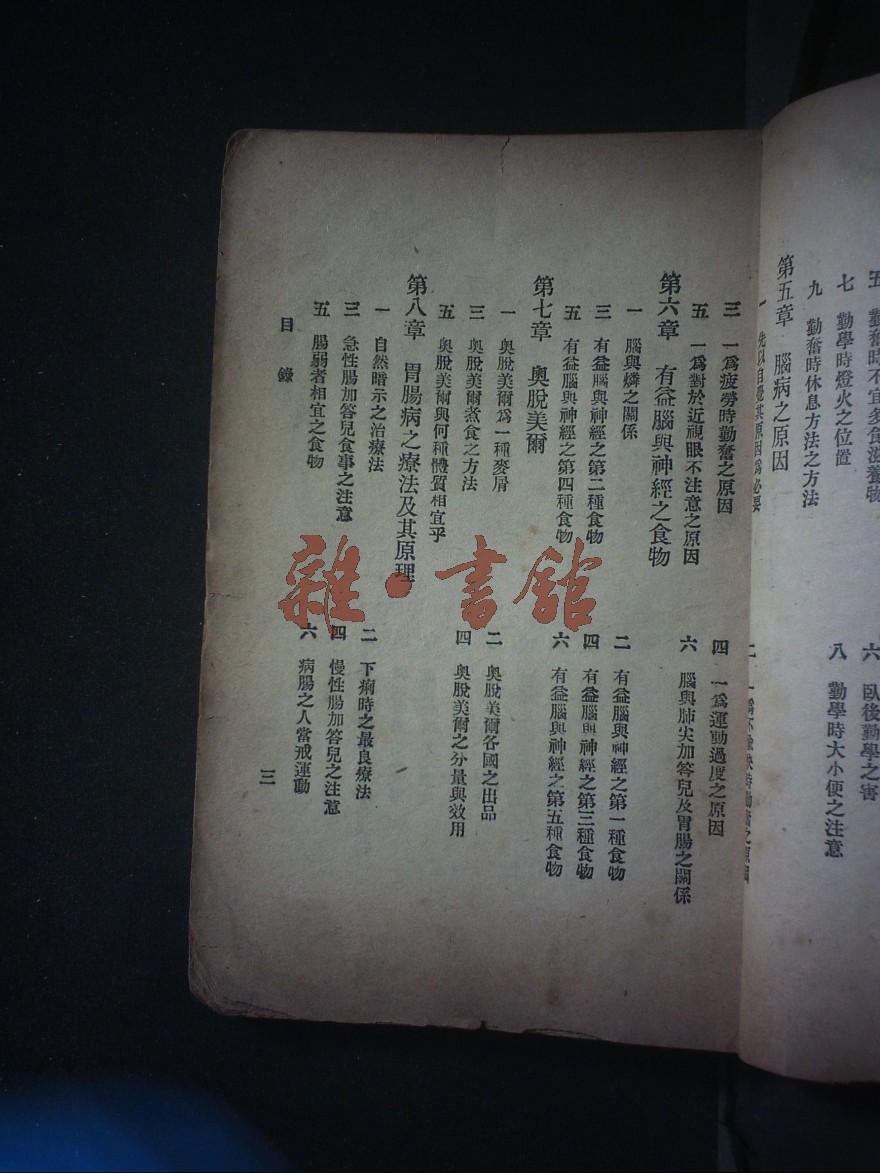 五 勤奮時不宜多食滋養物 六 臥後勤學之害
七 勤學時燈火之位置 八 勤學時大小便之注意
九 勤奮時休息方法之方法
第五章 腦病之原因
一 先以自覺其原因爲必要 二 一爲不愉快時勤奮之原因
三 一爲疲勞時勤奮之原因 四 一爲運動過度之原因
五 一爲對於近視眼不注意之原因 六 腦與肺尖加答兒及胃腸之關係
第六章 有益腦與神經之食物
一 腦與燐之關係 二 有益腦與神經之第一種食物
三 有益腦與神經之第二種食物 四 有益腦與神經之第三種食物
五 有益腦與神經之第四種食物 六 有益腦與神經之第五種食物
第七章 奧脫美爾
一 奧脫美爾爲一種麥屑 二 奧脫美爾各國之出品
三 奧脫美爾煮食之方法 四 奧脫美爾之分量與效用
五 奧脫美爾與何種體質相宜乎
第八章 胃腸病之療法及其原理
一 自然暗示之治療法 二 下痢時之最良療法
三 急性腸加答兒食事之注意 四 慢性腸加答兒之注意
五 腸弱者相宜之食物 六 病腸之人當戒運動
目錄 三
雜·書館